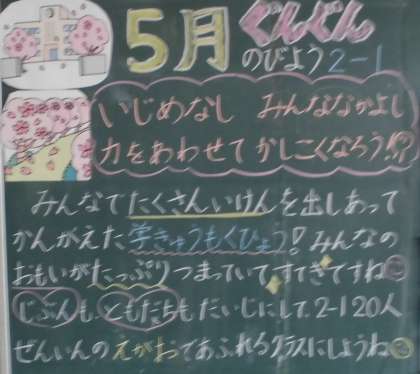 5月 ぐんぐん
のびよう 2-1
いじめなし みんななかよし
力をあわせて かしこくなろう!?
みんなでたくさんいけんを出しあって
かんがえた学きゅうもくひょう! みんなの
おもいがたっぷりつまっていてすてきですね
じぶんも、ともだちもだいじにして、2-1 20人
ぜんいんのえがおであふれるクラスにしようね